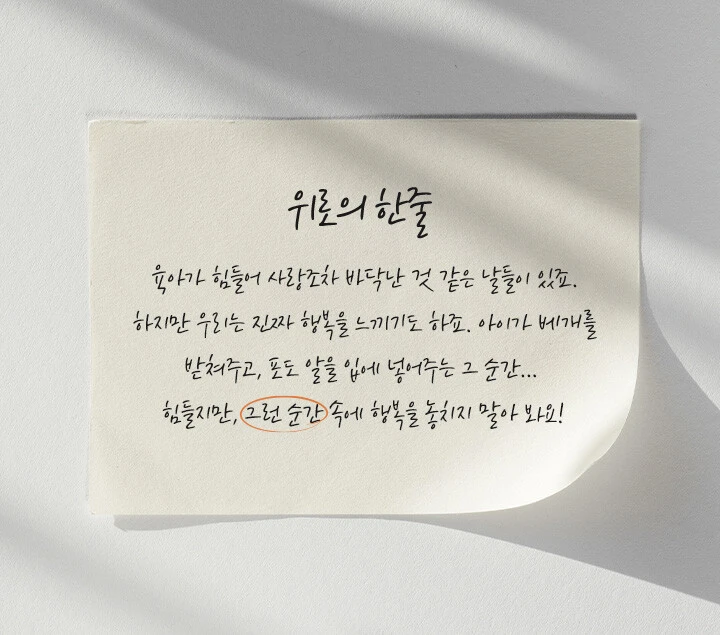 위로의 한줄
육아가 힘들어 사랑조차 바닥난 것 같은 날들이 있죠.
하지만 우리는 진짜 행복을 느끼기도 하죠. 아이가 베개를
받쳐주고, 포도 알을 입에 넣어주는 그 순간...
힘들지만, 그런 순간 속에 행복을 놓치지 말아 봐요!